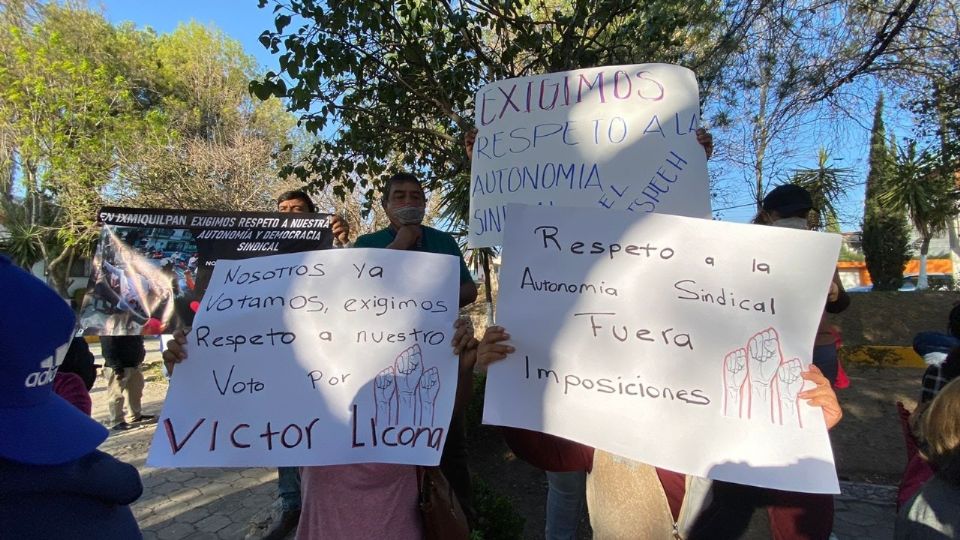 EN IXMIQUILPAN EXIGIMOS RESPETO A NUESTRA
AUTONOMÍA Y DEMOCRACIA
SINDICAL
EXIGIMOS
RESPETO A LA
AUTONOMIA
EL
Nosotros ya
Votamos, exigimos
Respeto a nuestro
Voto Por
Victor Licona
Respeto a la
Autonomia Sindical
Fuera
Imposiciones
adidas